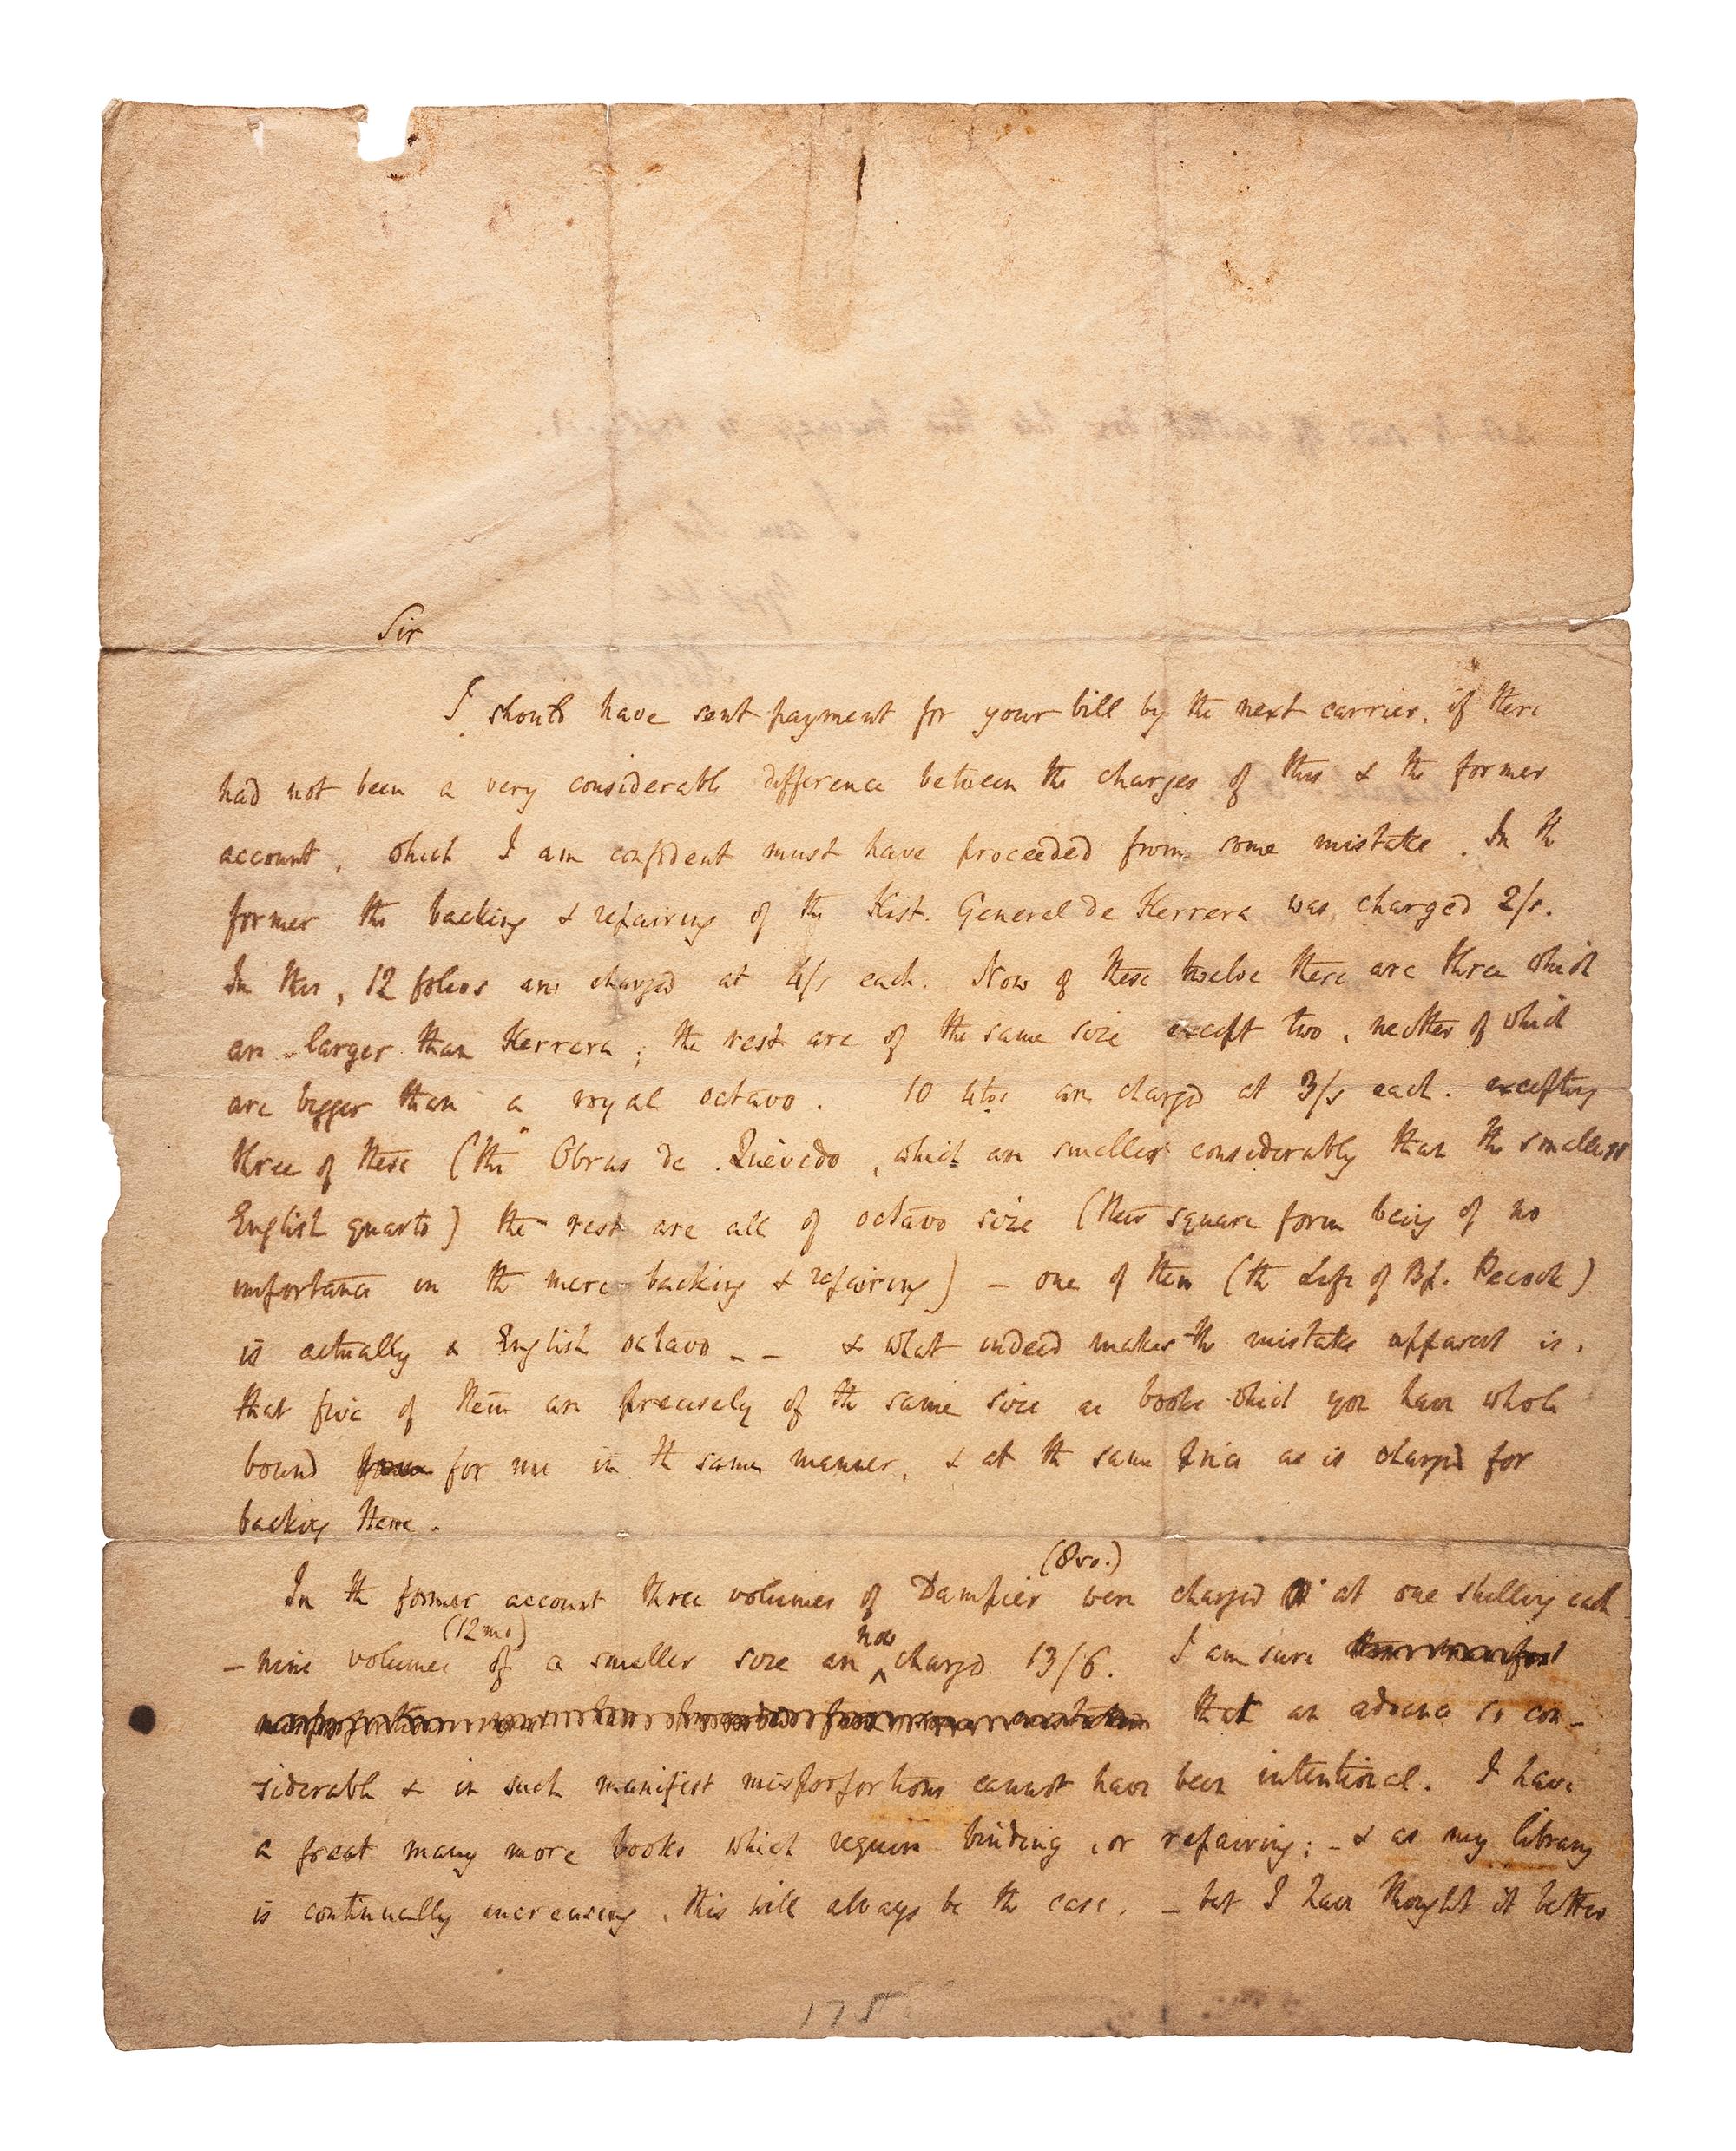 Sir
I should have sent payment for your bill by the next carrier, if there
had not been a very considerable difference between the charges of this & the former
account, which I am confident must have proceeded from some mistake. In the
former the backing & repairing of the Hist. General de Herrera was charged 2/s.
In this, 12 folios are charged at 4/s each. Now of these twelve there are three which
are larger than Herrera; the rest are of the same size except two, neither of which
are bigger than a royal octavo. 10 4tos are charged at 3/s each. excepting
three of these (the Obras de Quevedo, which are smaller considerably than the smallest
English quarto) the rest are all of octavo size (their square form being of no
importance in the mere backing & repairing) – one of them (the Life of Bp. Pecock)
is actually a English octavo – – & what indeed makes the mistake apparent is,
that five of them are precisely of the same size as books which you have whole
bound for me in the same manner, & at the same price as is charged for
backing these.
(8vo.)
In the former account three volumes of Dampier were charged at one shilling each
(12mo) now
– nine volumes of a smaller size are ^ charged 13/6. I am sure
that an advance so con-
siderable & in such manifest misproportions cannot have been intentional. I have
a great many more books which require binding, or repairing; – & as my library
is continually increasing, this will always be the case. – but I have thought it better
175